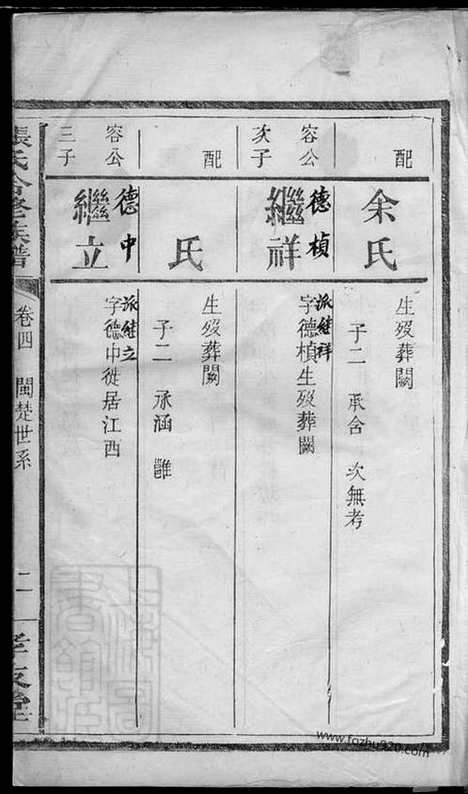 配
余氏
生歿葬闕
子二 承舍 次無考
容公
次子
繼祥
德楨
派繼祥
字德楨生歿葬闕
配
氏
生歿葬闕
子二 承涵 
容公
三子
繼立
德中
派繼立
字德中徙居江西
張氏合修族譜
卷四 閩楚世系
二
孝友堂
www.fozhu920.com